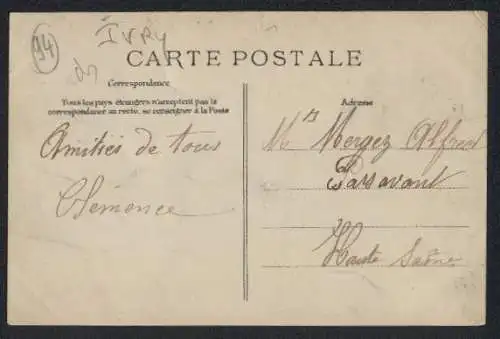 94
IVRY
CARTE POSTALE
Correspondance
Tous les pays étrangers n'acceptent pas la
correspondance au recto, se renseigner à la Poste
Amitiés de tous
Clémence
Adresse
Mergez Alfred
Passavant
Haute Saône